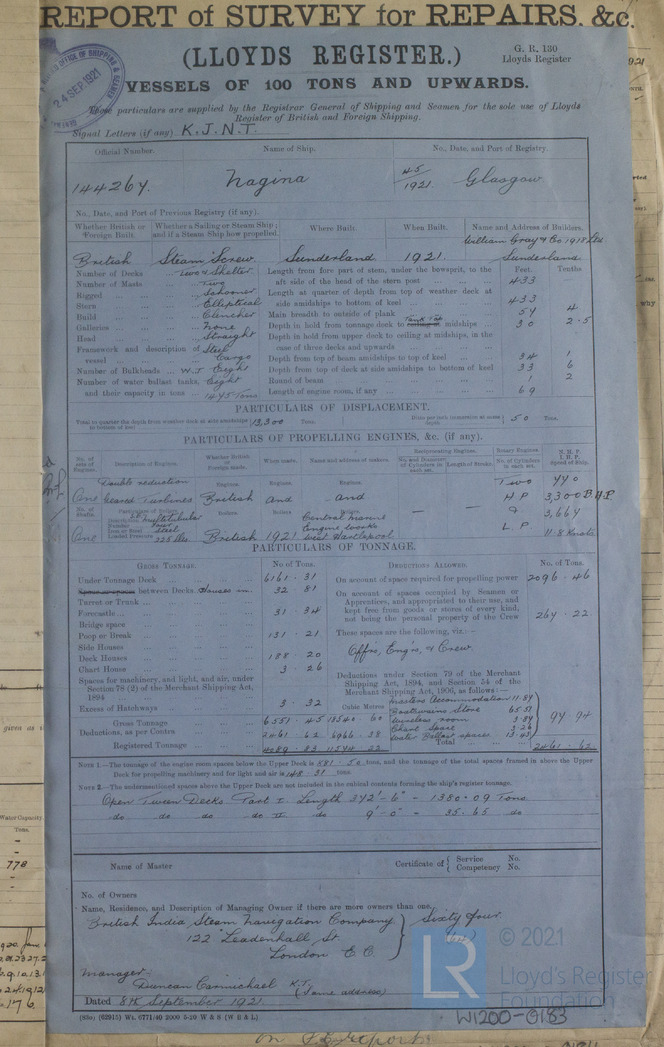 REPORT of SURVEY for REPAIRS, &c.
(LLOYDS REGISTER.)
G. R. 130
Lloyds Register
24 SEP 1921
VESSELS OF 100 TONS AND UPWARDS.
These particulars are supplied by the Registrar General of Shipping and Seamen for the sole use of Lloyds
Register of British and Foreign Shipping.
Signal Letters (if any) K.J.N.T.
Official Number. Name of Ship. No., Date, and Port of Registry.
144264. Nagina 45/1921. Glasgow
No., Date, and Port of Previous Registry (if any).
Whether British or Foreign Built. Whether a Sailing or Steam Ship; and if a Steam Ship how propelled. Where Built. When Built. Name and Address of Builders.
William Gray & Co 1918 Ltd
British Steam, Screw. Sunderland 1921. Sunderland
Number of Decks Two & Shelter
Number of Masts Two
Rigged Schooner
Stern Elliptical
Build Clencher
Galleries None
Head Straight
Framework and description of vessel Steel Cargo
Number of Bulkheads W.T Eight
Number of water ballast tanks, Eight
and their capacity in tons 1475 Tons
Feet. Tenths
Length from fore part of stem, under the bowsprit, to the
aft side of the head of the stern post 433
Length at quarter of depth from top of weather deck at
side amidships to bottom of keel 433
Main breadth to outside of plank 54 4
Depth in hold from tonnage deck to Tank Top midships 30 2.5
Depth in hold from upper deck to ceiling at midships, in the
case of three decks and upwards
Depth from top of beam amidships to top of keel 34 1
Depth from top of deck at side amidships to bottom of keel 33 6
Round of beam 1 2
Length of engine room, if any 69
PARTICULARS OF DISPLACEMENT.
Total to quarter the depth from weather deck at side amidships to bottom of keel 13,300 Tons. Ditto per inch immersion at same depth 50 Tons.
PARTICULARS OF PROPELLING ENGINES, &c. (if any).
No. of sets of Engines. Description of Engines. Whether British or Foreign made. When made. Name and address of makers. Reciprocating Engines. Rotary Engines. N.H.P. I.H.P. Speed of Ship.
No. and Diameter of Cylinders in each set. Length of Stroke. No. of Cylinders in each set.
Double reduction Engines. Engines. Engines. Two 440
One Geared Turbines British and and H P 3,300 B.H.P
No. of Shafts. Particulars of Boilers. Boilers. Boilers. Boilers. & 3,664
Description Multitubular
Number Four
Iron or Steel Steel
Loaded Pressure 225 lbs.
One British 1921 Central Marine Engine Works West Hartlepool L. P 11.8 Knots
PARTICULARS OF TONNAGE.
GROSS TONNAGE. No. of Tons. DEDUCTIONS ALLOWED. No. of Tons.
Under Tonnage Deck 6161.31
between Decks Houses on 32 81
Turret or Trunk
Forecastle 31.34
Bridge space
Poop or Break 131.21
Side Houses
Deck Houses 188 20
Chart House 3.26
Spaces for machinery, and light, and air, under
Section 78 (2) of the Merchant Shipping Act,
1894
Excess of Hatchways 3.32
Cubic Metres
Gross Tonnage 6551.45 18540.60
Deductions, as per Contra 2461.62 6966.38
Registered Tonnage 4089.83 11574.22
On account of space required for propelling power 2096.46
On account of spaces occupied by Seamen or
Apprentices, and appropriated to their use, and
kept free from goods or stores of every kind,
not being the personal property of the Crew 264.22
These spaces are the following, viz.:—
Offrs, Engrs, & Crew.
Deductions under Section 79 of the Merchant
Shipping Act, 1894, and Section 54 of the
Merchant Shipping Act, 1906, as follows:—
Masters Accommodation 11.84
Boatswains Store 65.53
Wireless room 3.84
Chart Space 3.26
Water Ballast spaces 13.43
94.94
Total 2461.62
NOTE 1.—The tonnage of the engine room spaces below the Upper Deck is 881.50 tons, and the tonnage of the total spaces framed in above the Upper
Deck for propelling machinery and for light and air is 148.31 tons.
NOTE 2.—The undermentioned spaces above the Upper Deck are not included in the cubical contents forming the ship's register tonnage.
Open Tween Decks Part I. Length 342'-6" - 1380.09 Tons
do do do do II do 9'-0" - 35.65 do
Name of Master Certificate of Service No. Competency No.
No. of Owners
Name, Residence, and Description of Managing Owner if there are more owners than one.
British India Steam Navigation Company
122 Leadenhall St.
London E.C.
Sixty four
Manager:
Duncan Carmichael K.T.
(Same address)
Dated 8th September 1921.
(88o) (62915) Wt. 6771/40 2000 5-20 W & S (W B & L)
LR
© 2021
Lloyd's Register
Foundation
W1200-0183
Water Capacity
Tons.
778
given as
why